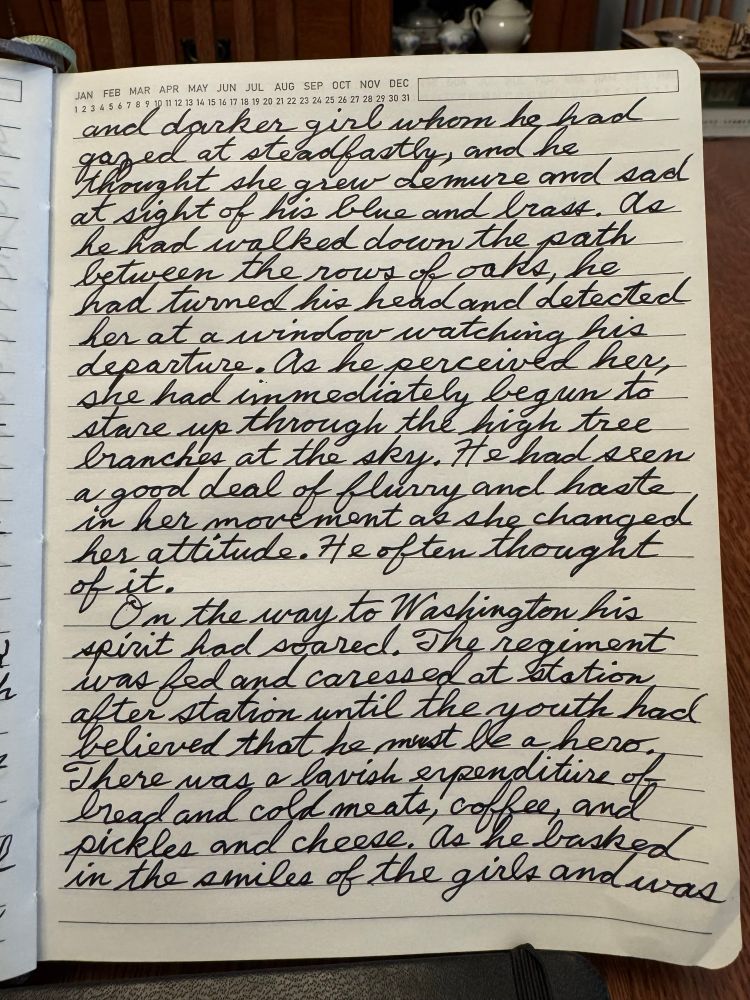 JAN FEB MAR APR MAY JUN JUL AUG SEP OCT NOV DEC
1 2 3 4 5 6 7 8 9 10 11 12 13 14 15 16 17 18 19 20 21 22 23 24 25 26 27 28 29 30 31
and darker girl whom he had
gazed at steadfastly, and he
thought she grew demure and sad
at sight of his blue and brass. As
he had walked down the path
between the rows of oaks, he
had turned his head and detected
her at a window watching his
departure. As he perceived her,
she had immediately begun to
stare up through the high tree
branches at the sky. He had seen
a good deal of flurry and haste
in her movement as she changed
her attitude. He often thought
of it.
On the way to Washington his
spirit had soared. The regiment
was fed and caressed at station
after station until the youth had
believed that he must be a hero.
There was a lavish expenditure of
bread and cold meats, coffee, and
pickles and cheese. As he basked
in the smiles of the girls and was